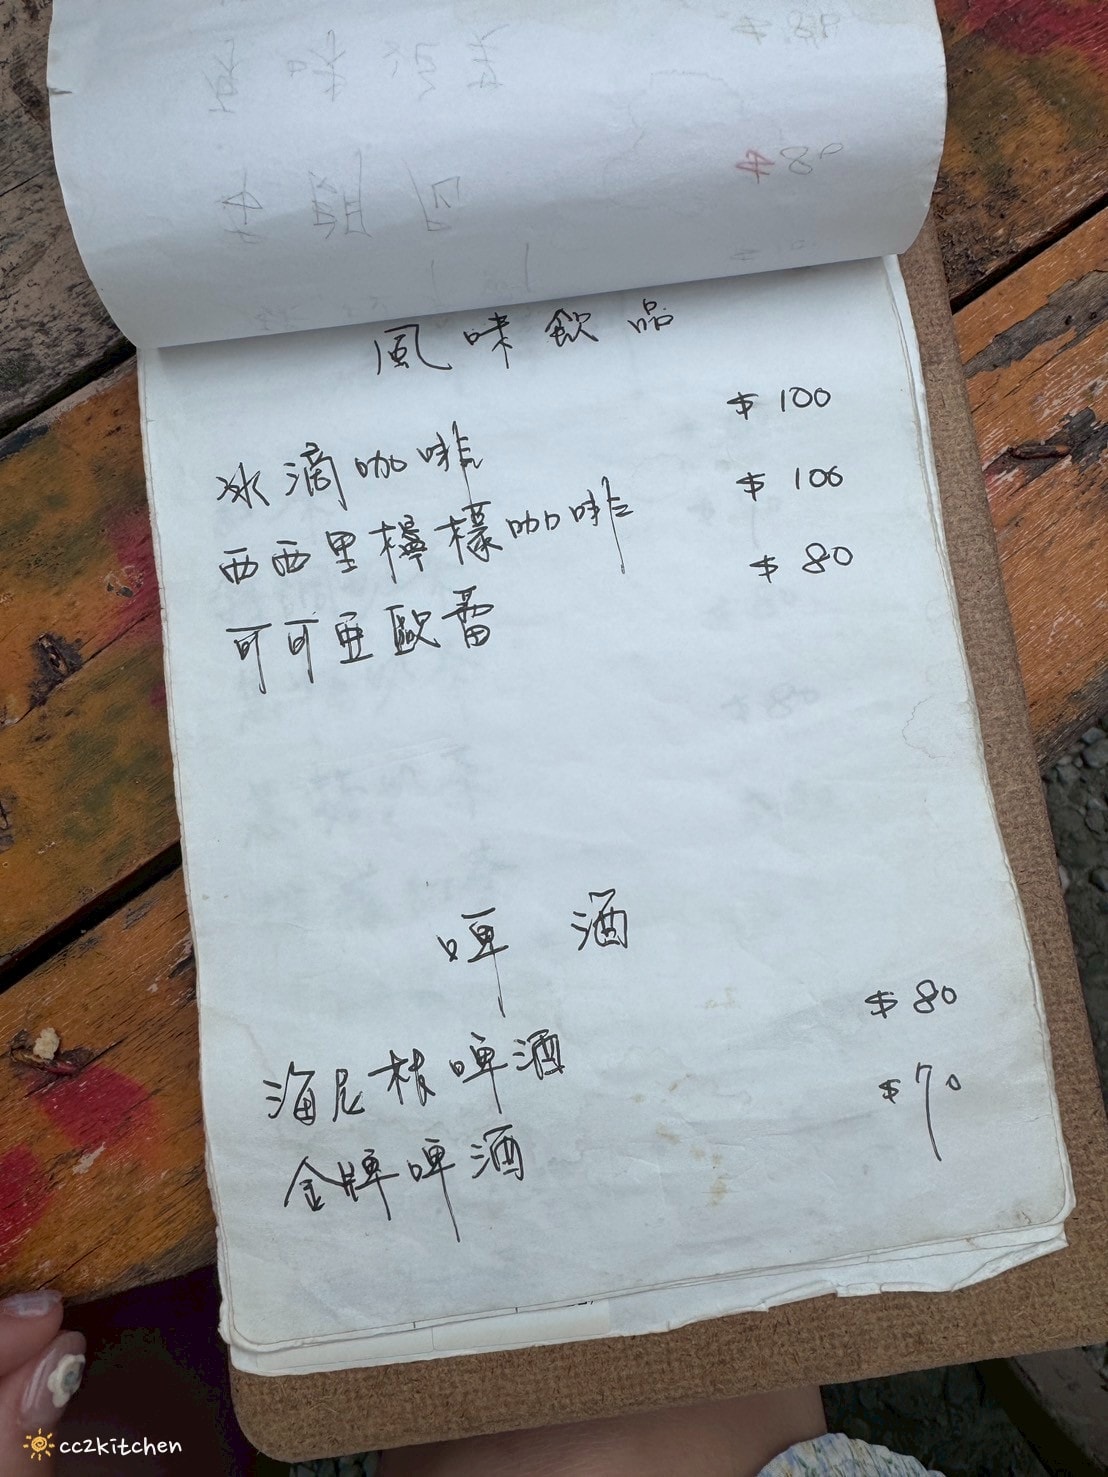 $ 80
風味飲品
冰滴咖啡 $ 100
西西里檸檬咖啡 $ 100
可可亞歐蕾 $ 80
啤 酒
海尼根啤酒 $ 80
金牌啤酒 $ 70
cc2kitchen